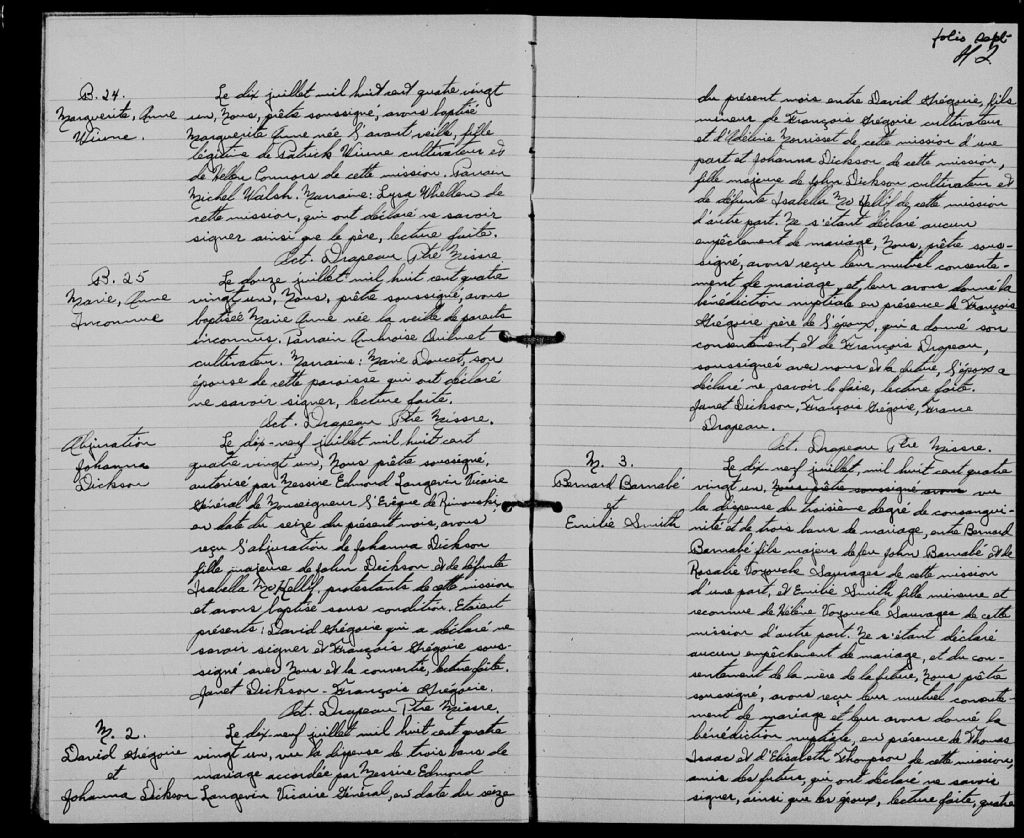 B. 24.
Marguerite, Anne
Winne.
Le dix juillet mil huit cent quatre vingt
un, Nous, prêtre soussigné, avons baptisé
Marguerite Anne née l'avant veille, fille
légitime de Patrick Winne cultivateur et
de Hellen Connors de cette mission. Parrain
Michel Walsh. Marraine: Lysa Whellen de
cette mission, qui ont déclaré ne savoir
signer ainsi que le père, lecture faite.
Oct. Drapeau Ptre Missre
B. 25
Marie, Anne
Inconnue
Le douze juillet mil huit cent quatre
vingt un, Nous, prêtre soussigné, avons
baptisée Marie Anne née la veille de parents
inconnus. Parrain Ambroise
cultivateur. Marraine: Marie Doucet, son
épouse de cette paroisse qui ont déclaré
ne savoir signer, lecture faite.
Oct. Drapeau Ptre Missre.
Abjuration
Johanna
Dickson
Le dix-neuf juillet mil huit cent
quatre vingt un, Nous prêtre soussigné,
autorisé par Messire Edmond Langevin Vicaire
Général de Monseigneur l'Evêque de Rimouski
en date du seize du présent mois, avons
reçu l'abjuration de Johanna Dickson
fille majeure de John Dickson et de défunte
Isabella Mc Kelly, protestants de cette mission
et avons baptisé sous condition. Etaient
présents: David Grégoire qui a déclaré ne
savoir signer et François Grégoire sous-
signé avec Nous et la convertie, lecture faite.
Janet Dickson - François Grégoire.
Oct. Drapeau Ptre Missre.
M. 2.
David Grégoire
et
Johanna Dickson
Le dix-neuf juillet mil huit cent quatre
vingt un, vu la dispense de trois bans de
mariage accordée par Messire Edmond
Langevin Vicaire Général, en date du seize
folio sept
H 2
du présent mois entre David Grégoire, fils
mineur de François Grégoire cultivateur
et d'Adeline Morrisset de cette mission d'une
part et Johanna Dickson de cette mission,
fille majeure de John Dickson cultivateur et
de défunte Isabella Mc Kelly de cette mission
d'autre part. Ne s'étant déclaré aucun
empêchement de mariage, Nous, prêtre sous-
signé, avons reçu leur mutuel consente-
ment de mariage, et leur avons donné la
bénédiction nuptiale en présence de François
Grégoire père de l'époux, qui a donné son
consentement, et de François Drapeau,
soussignés avec nous et la future, l'époux a
déclaré ne savoir le faire, lecture faite.
Janet Dickson, François Grégoire, France
Drapeau.
Oct. Drapeau Ptre Missre.
M. 3.
Bernard Barnabé
et
Emilie Smith
Le dix neuf juillet, mil huit cent quatre
vingt un, Nous prêtre soussigné avons vu
la dispense du troisième degré de consangui-
nité et de trois bans de mariage, entre Bernard
Barnabé fils majeur de feu John Barnabé et de
Rosalie Sauvages de cette mission
d'une part, et Emilie Smith fille mineure et
reconnue de Hélène Sauvages de cette
mission d'autre part. Ne s'étant déclaré
aucun empêchement de mariage, et du con-
sentement de la mère de la future, Nous prêtre
soussigné, avons reçu leur mutuel consente-
ment de mariage et leur avons donné la
bénédiction nuptiale, en présence de Thomas
Isaac et d'Elisabeth Thompson de cette mission,
amis des futurs, qui ont déclaré ne savoir
signer, ainsi que les époux, lecture faite, quatre